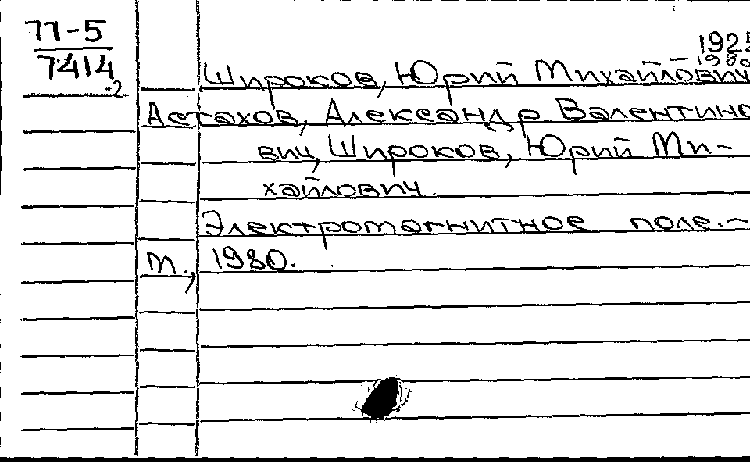 77-5
7414
-2
1925
-1980
Широков, Юрий Михайлович
Астахов, Александр Валентино
вич, Широков, Юрий Ми-
хайлович.
Электромагнитное поле.-
М., 1980.